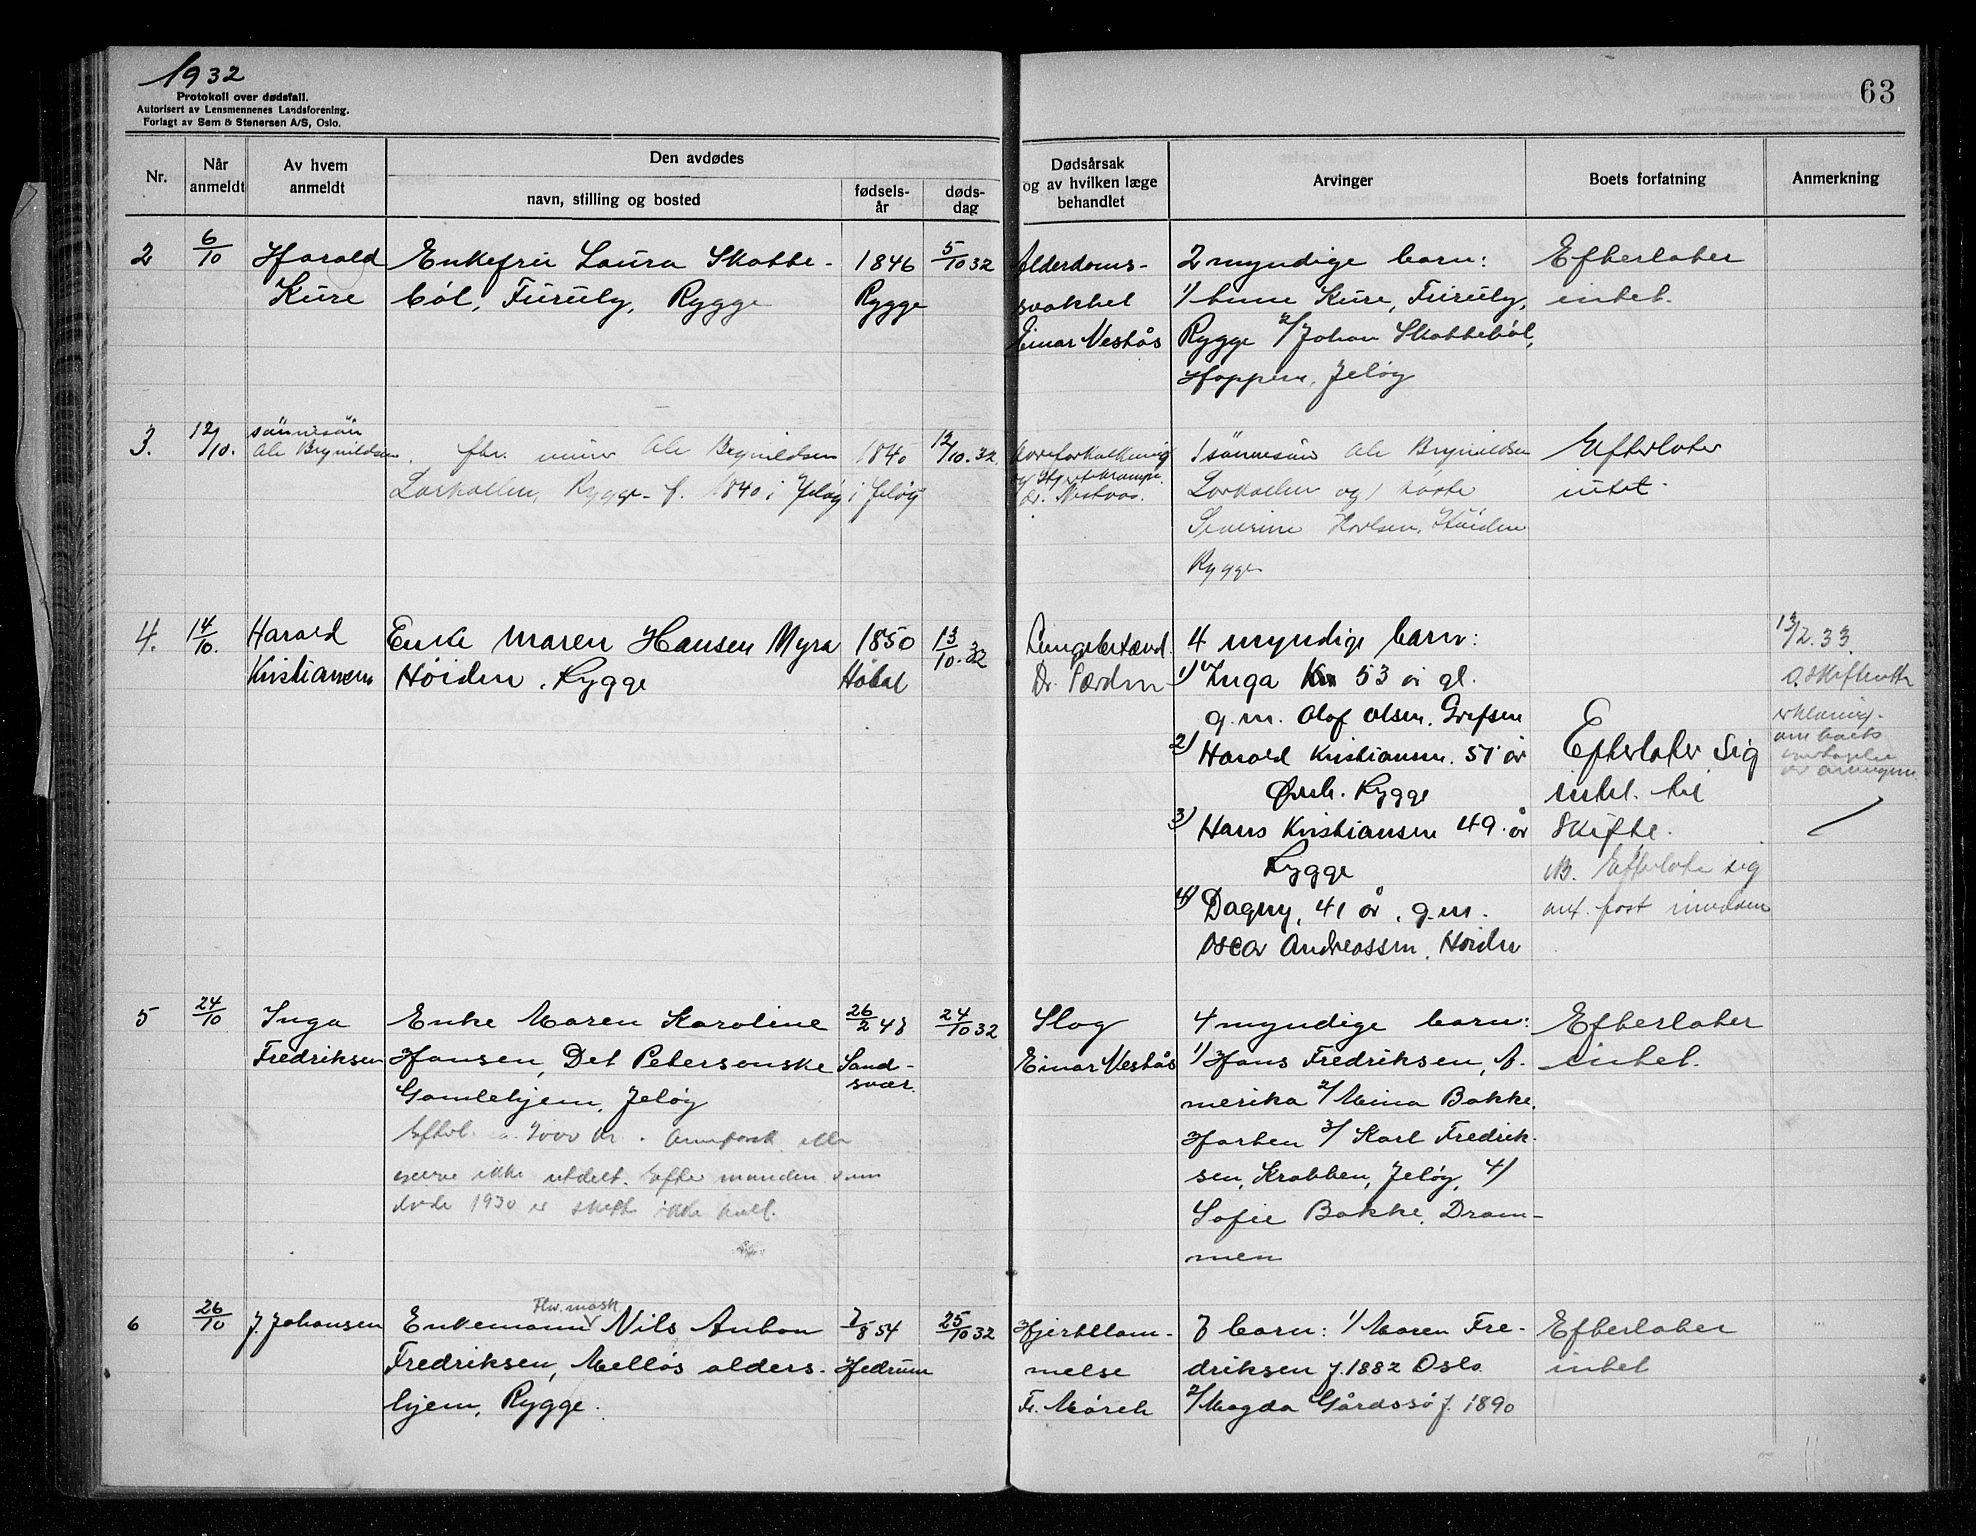 1932
Protokoll over dødsfall.
Autorisert av Lensmennenes Landsforening.
Forlagt av Sem & Stenersen A/S, Oslo.
63
Nr.
Når anmeldt
Av hvem anmeldt
Den avdødes
navn, stilling og bosted
fødsels-år
døds-dag
Dødsårsak og av hvilken læge behandlet
Arvinger
Boets forfatning
Anmerkning
2
6/10
Harald
Kure
Enkefru Laura Skatte-
bøl, Furuly, Rygge
1846
Rygge
5/10 32
Alderdoms-
svakhet
Einar Nestås
2 myndige barn:
1/ Kure, Furuly,
Rygge 2/ Johan Skattebøl,
Hoppern, Jeløy
Efterlater
intet.
3.
12/10.
sönnesön
Ole Brynildsen
fhv. murer Ole Brynildsen
Larkollen, Rygge - f. 1840 i Jeløy
1840
i Jeløy
12/10.32
Åreforkalkning
Dr. Nestaas.
1 sønnesøn Ole Brynildsen
Larkollen og 1
Severine Karlsen, Høiden
Rygge
Efterlater
intet.
4.
14/10.
Harald
Kristiansen
Enke Maren Hansen Myra
Höiden, Rygge
1850
Håbøl
13/10.32
Lungebetænd.
Dr.
4 myndige barn:
1) Inga 53 år gl.
g.m. Olaf Olsen, Grefsen
2) Harald Kristiansen. 51 år
Rygge
3) Hans Kristiansen 49 år
Rygge
4) Dagny, 41 år, g.m.
Oscar Andreassen, Höiden
Efterlater sig
intet til
Skifte.
NB. Efterlate sig
ant. post
13/2.33.
erklæring
om boets
overtagelse
av arvingene
5
24/10
Inga
Fredriksen
Enke Maren Karoline
Hansen, Det Petersonske
Gamlehjem, Jeløy
Efterl. kr.
ikke utdelt. Efter manden som
døde 1930 er skift ikke holt.
26/2 48
Sand-
svær.
24/10 32
Slag
Einar Nestås
4 myndige barn:
1/ Hans Fredriksen, A-
merika 2/ Mina Bakke,
3/ Karl Fredrik-
sen, Krabben, Jeløy, 4/
Sofie Bakke, Dram-
men
Efterlater
intet.
6
26/10
J. Johansen
Fhv. mask.
Enkemann Nils Anton
Fredriksen, Melløs alders-
hjem, Rygge.
7/8 54
Hedrum
25/10 32
Hjertelam-
melse
Fr. Mørch
7 barn: 1/ Maren Fre-
driksen f. 1882 Oslo
2/ Magda Gårdssø f. 1890
Efterlater
intet